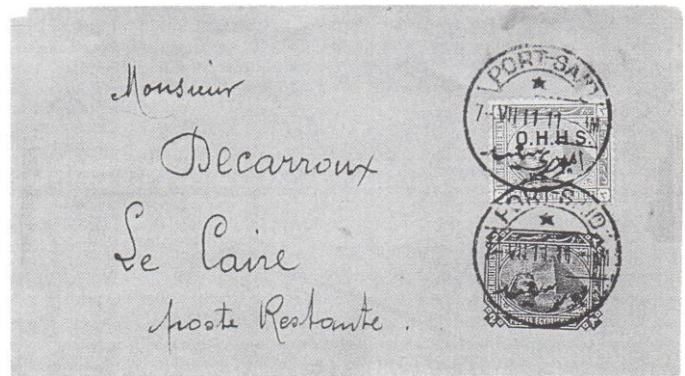 Monsieur
Decarroux
Le Caire
poste Restante.
PORT-SAID
7-VII 11 11
O.H.H.S.
PORT-SAID
VII 11 11